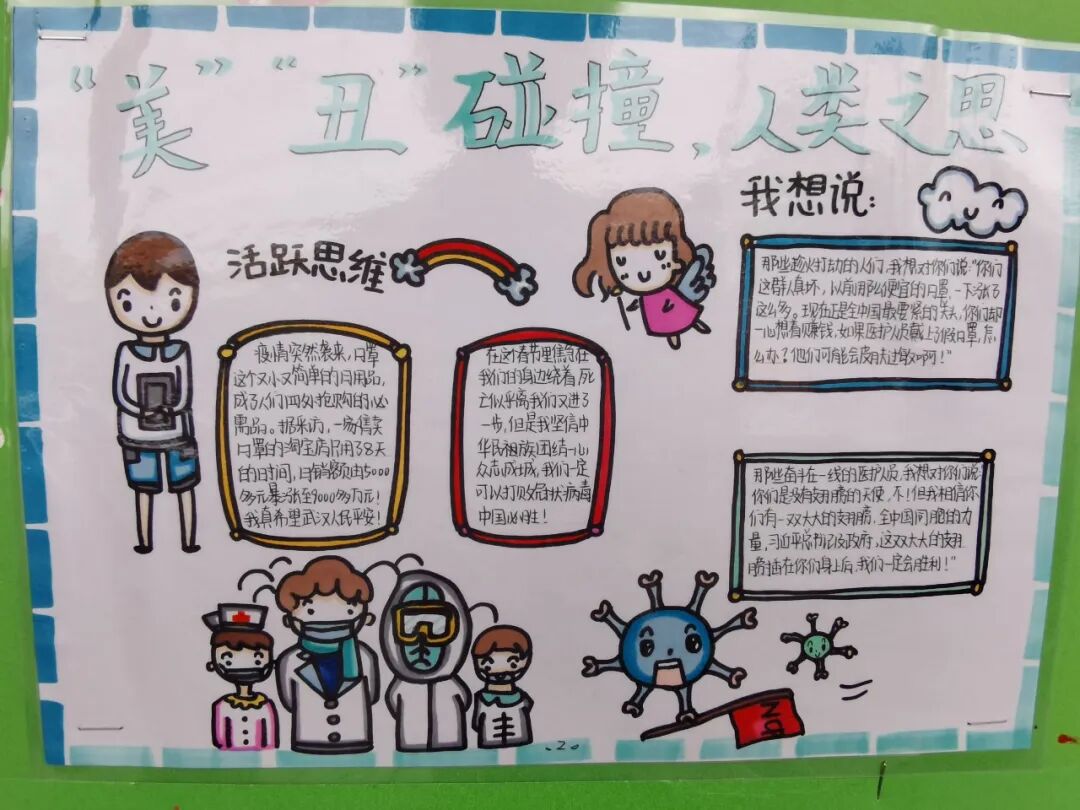 “美”“丑”碰撞，人类之思
活跃思维
疫情突然袭来，口罩
这个又小又简单的日用品，
成了人们四处抢购的必
需品。据采访，一场售卖
口罩的淘宝店只用了38天
的日时间，日销额由5000
多元暴涨至9000多万元！
我真希望武汉人民平安！
在这个春节里焦急在
我们的身边绕着，死
亡似乎离我们又进了
一步，但是我坚信中
华民祖族团结一心
众志成城，我们一定
可以打败冠状病毒
中国必胜！
我想说：
那些趁火打劫的人们，我想对你们说：“你们
这群人真坏，以前那么便宜的口罩，一下涨了
这么多。现在正是全中国最要紧的关头，你们却
一心想着赚钱，如果医护人员戴上了假口罩，怎
么办？他们可能会度过难啊！”
那些奋斗在一线的医护人员，我想对你们说
你们是没有翅膀的天使，不！但我相信你
们有一双大大的翅膀，全中国同胞的力
量，习近平总书记及政府，这双大大的翅
膀插在你们身上后，我们一定会胜利！”
NO
2